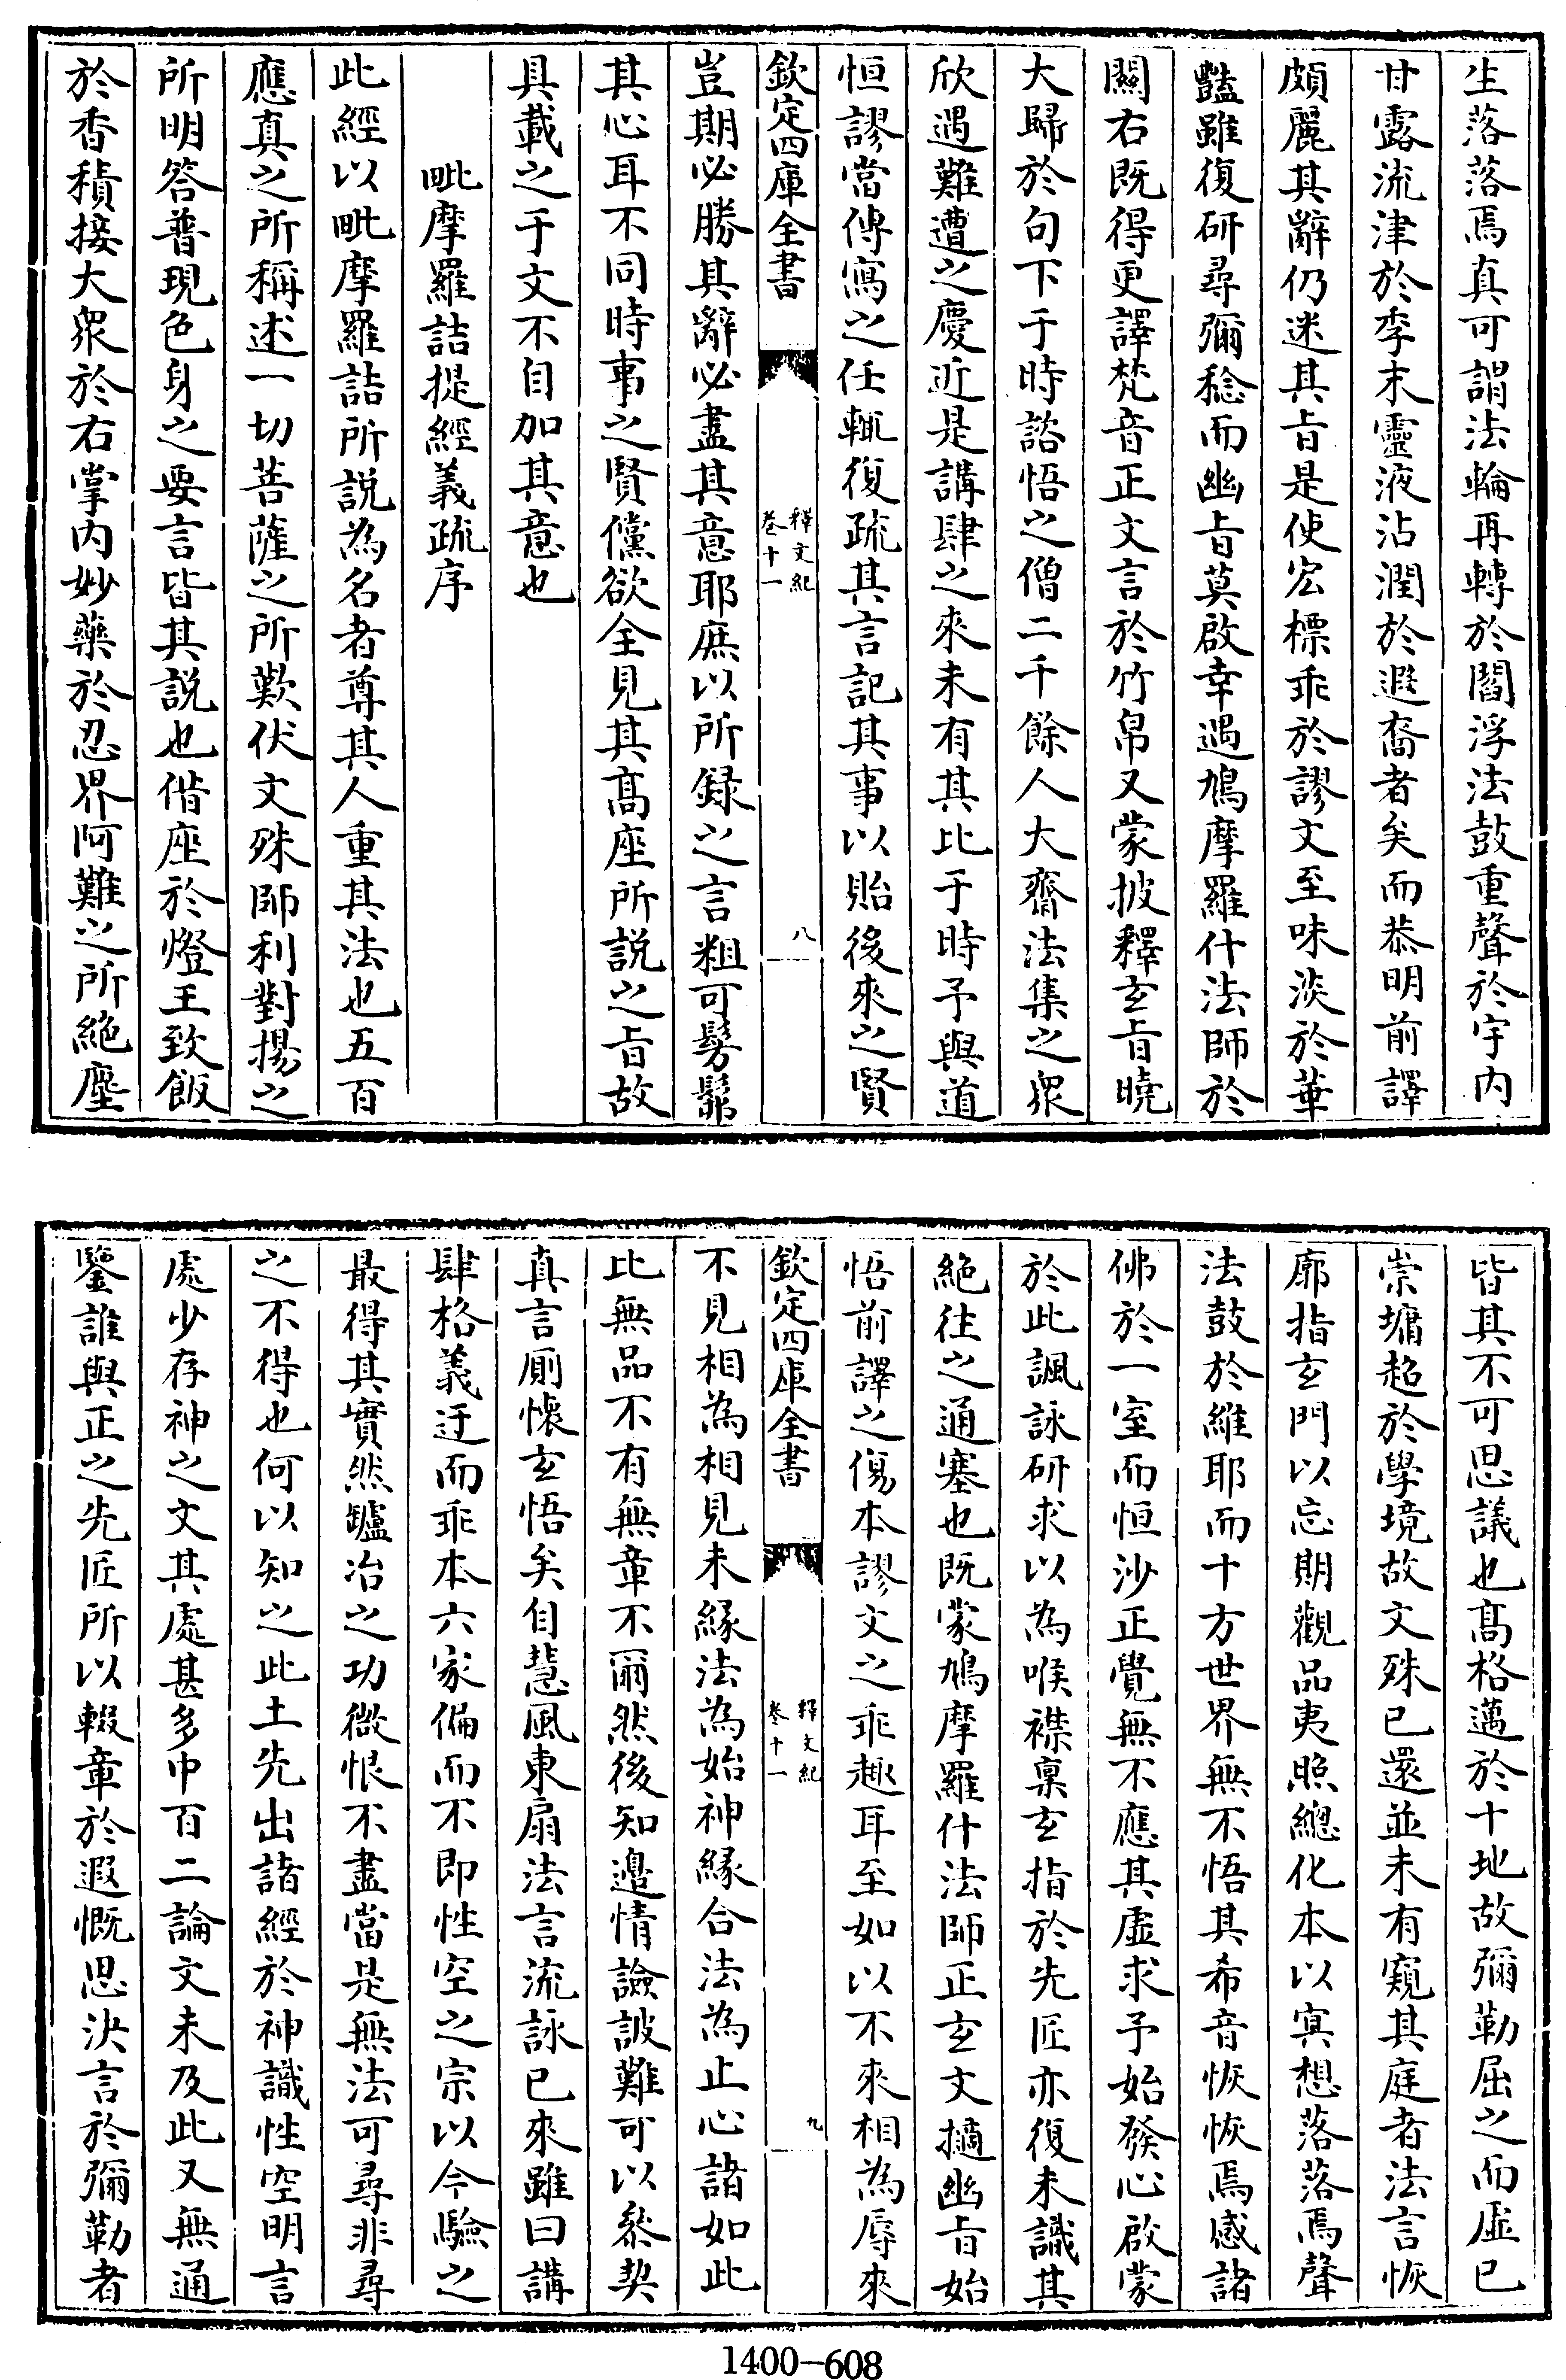 生落落焉真可謂法輪再轉於閻浮法鼓重聲於宇内
甘露流津於季末靈液沾潤於遐裔者矣而恭明前譯
頗麗其辭仍迷其旨是使宏標乖於謬文至味淡於華
豔雖復研尋彌稔而幽旨莫啟幸遇鳩摩羅什法師於
關右既得更譯梵音正文言於竹帛又蒙披釋玄旨曉
大歸於句下于時諮悟之僧二千餘人大齋法集之衆
欣遇難遭之慶近是講肆之來未有其比于時予與道
恒謬當傳寫之任輒復疏其言記其事以貽後來之賢
欽定四庫全書
釋文紀
卷十一
八
豈期必勝其辭必盡其意耶庶以所録之言粗可髣髴
其心耳不同時事之賢儻欲全見其髙座所説之旨故
具載之于文不自加其意也
毗摩羅詰提經義疏序
此經以毗摩羅詰所説為名者尊其人重其法也五百
應真之所稱述一切菩薩之所歎伏文殊師利對揚之
所明答普現色身之要言皆其説也借座於燈王致飯
於香積接大衆於右掌内妙藥於忍界阿難之所絶塵
皆其不可思議也髙格邁於十地故彌勒屈之而虛已
崇墉超於學境故文殊已還並未有窺其庭者法言恢
廓指玄門以忘期觀品夷照總化本以冥想落落焉聲
法鼓於維耶而十方世界無不悟其希音恢恢焉感諸
佛於一室而恒沙正覺無不應其虛求予始發心啟蒙
於此諷詠研求以為喉襟稟玄指於先匠亦復未識其
絶往之通塞也既蒙鳩摩羅什法師正玄文擿幽旨始
悟前譯之傷本謬文之乖趣耳至如以不來相為辱來
欽定四庫全書
釋文紀
卷十一
九
不見相為相見未緣法為始神緣合法為止心諸如此
比無品不有無章不爾然後知邊情險詖難可以叅契
真言厠懷玄悟矣自慧風東扇法言流詠已來雖曰講
肆格義迂而乖本六家偏而不即性空之宗以今驗之
最得其實然鑪冶之功微恨不盡當是無法可尋非尋
之不得也何以知之此土先出諸經於神識性空明言
處少存神之文其處甚多中百二論文未及此又無通
鑒誰與正之先匠所以輟章於遐慨思決言於彌勒者
1400-608